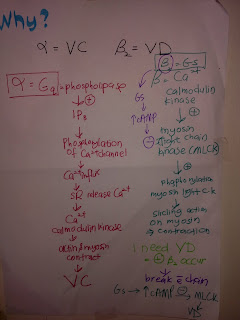 Why?
α = VC
β₂ = VD
α = Gq = phosphorpase
↓ ⊕
IP₃
↓
Phosphorylation
of Ca²⁺ channel
↓
Ca²⁺ influx
↓
SR release Ca²⁺
↓
Ca²⁺
calmodulin kinase
↓
actin & myosin
contract
↓
VC
β = Gs
β = Ca²⁺
Gs
↓
↑ cAMP
⊖
calmodulin
kinase
↓ ⊕
myosin
light chain
kinase (MLCK)
↓ ⊕
phosphorylation
myosin light c.k
↓
sliding action
on myosin
→ contraction
I need VD
= ⊕ β₂ occur
↓
break chain
Gs → ↑ cAMP ⊖ MLCK
↓
VD